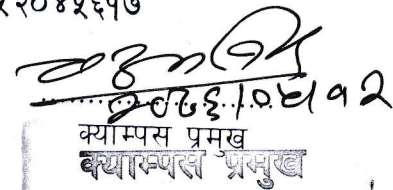 २०४५६१७
२०७६।०५।१२
क्याम्पस प्रमुख
क्याम्पस प्रमुख